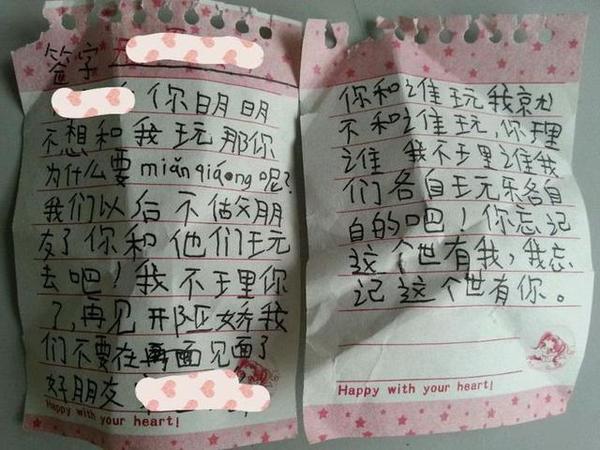 签字
你明明
不想和我玩那你
为什么要miǎnqiáong呢?
我们以后不做朋
友了你和他们玩
去吧！我不理你
了,再见
我
们不要在 面见面了
好朋友
Happy with your heart!
你和谁玩我就
不和谁玩,你理
谁 我不理谁我
们各自玩乐各自
自的吧！你忘记
这个世有我，我忘
记这个世有你。
Happy with your heart!